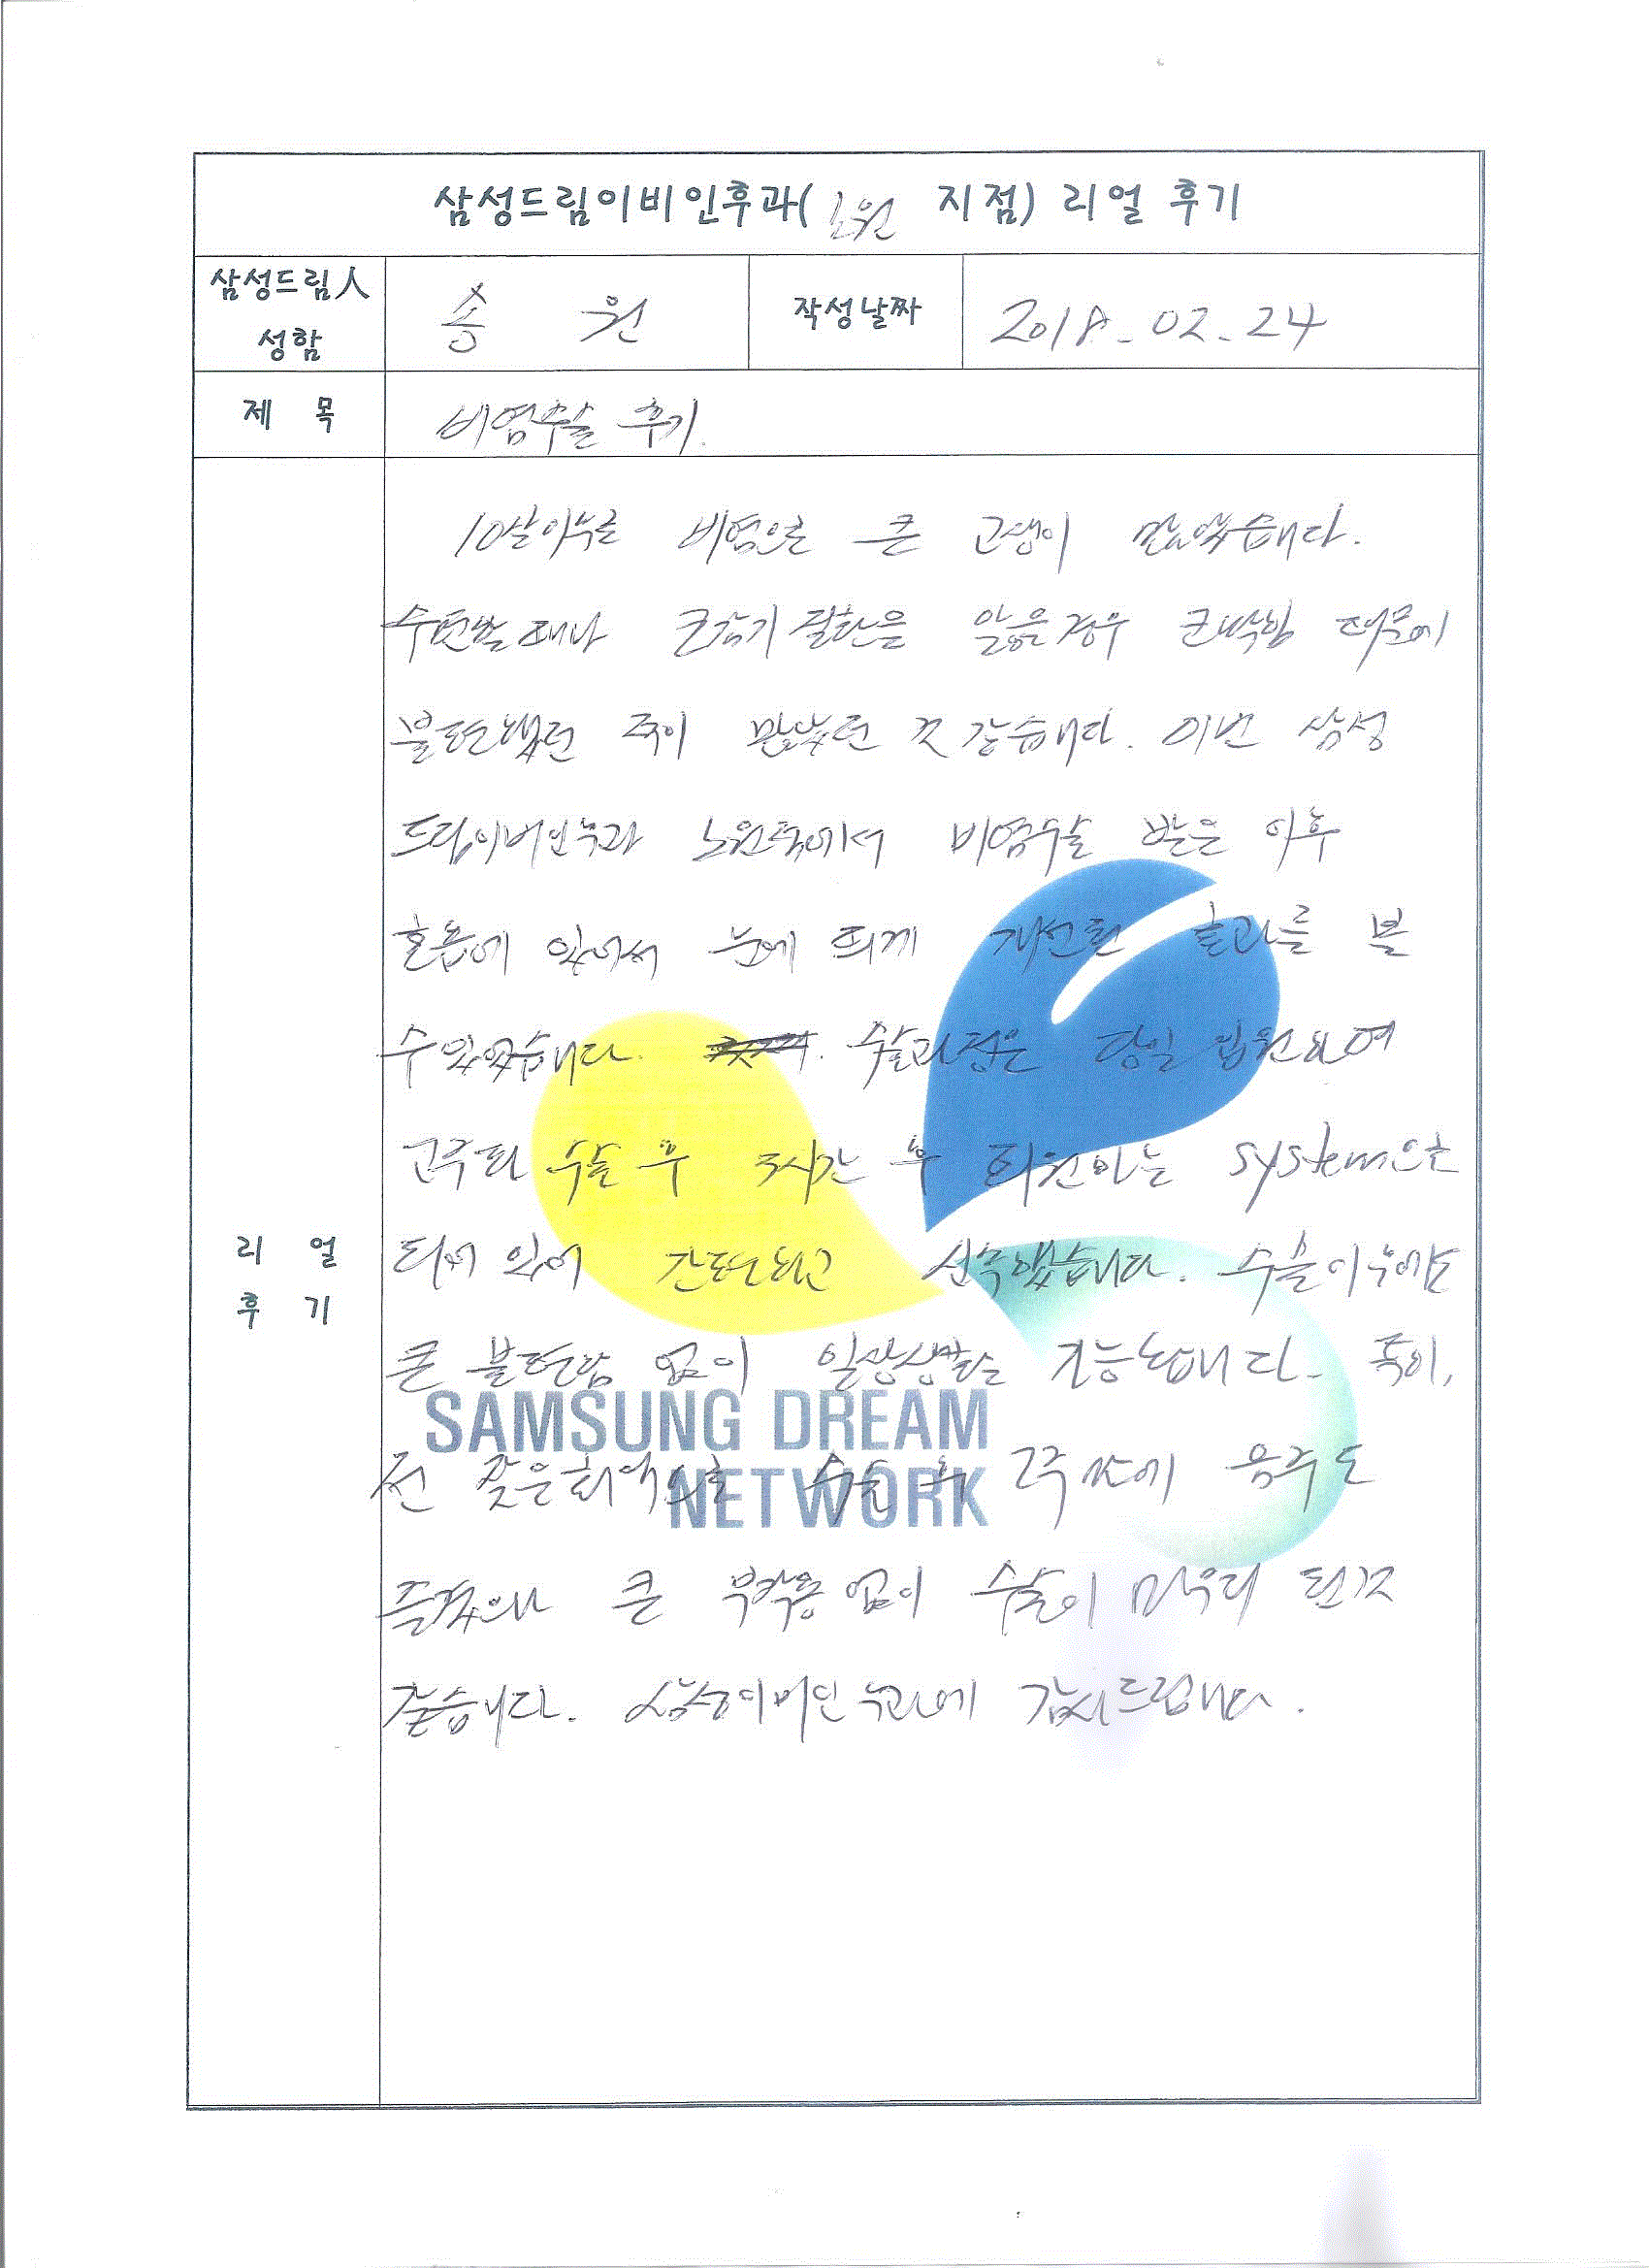 삼성드림이비인후과( 노원 지점) 리얼 후기
삼성드림人 성함
송 원
작성날짜
2018. 02. 24
제 목
비염수술 후기.
리 얼 후 기
10살이후로 비염으로 큰 고생이 많았습니다.
수면할때나 큰감기 질환을 앓을경우 코막힘 때문에
불편했던 적이 많았던 것 같습니다. 이번 삼성
드림이비인후과 노원점에서 비염수술 받은 이후
호흡에 있어서 눈에 띄게 개선된 효과를 볼
수 있었습니다. 수술과정은 당일 입원하여
고주파 수술 후 3시간 후 퇴원하는 system으로
되어 있어 간편하고 신속했습니다. 수술이후에도
큰 불편함 없이 일상생활을 가능했습니다. 특히,
전 잦은회식으로 수술 후 2주만에 음주도
즐겼으나 큰 부작용 없이 수술이 마무리 된것
같습니다. 이비인후과에 감사드립니다.
SAMSUNG DREAM
NETWORK